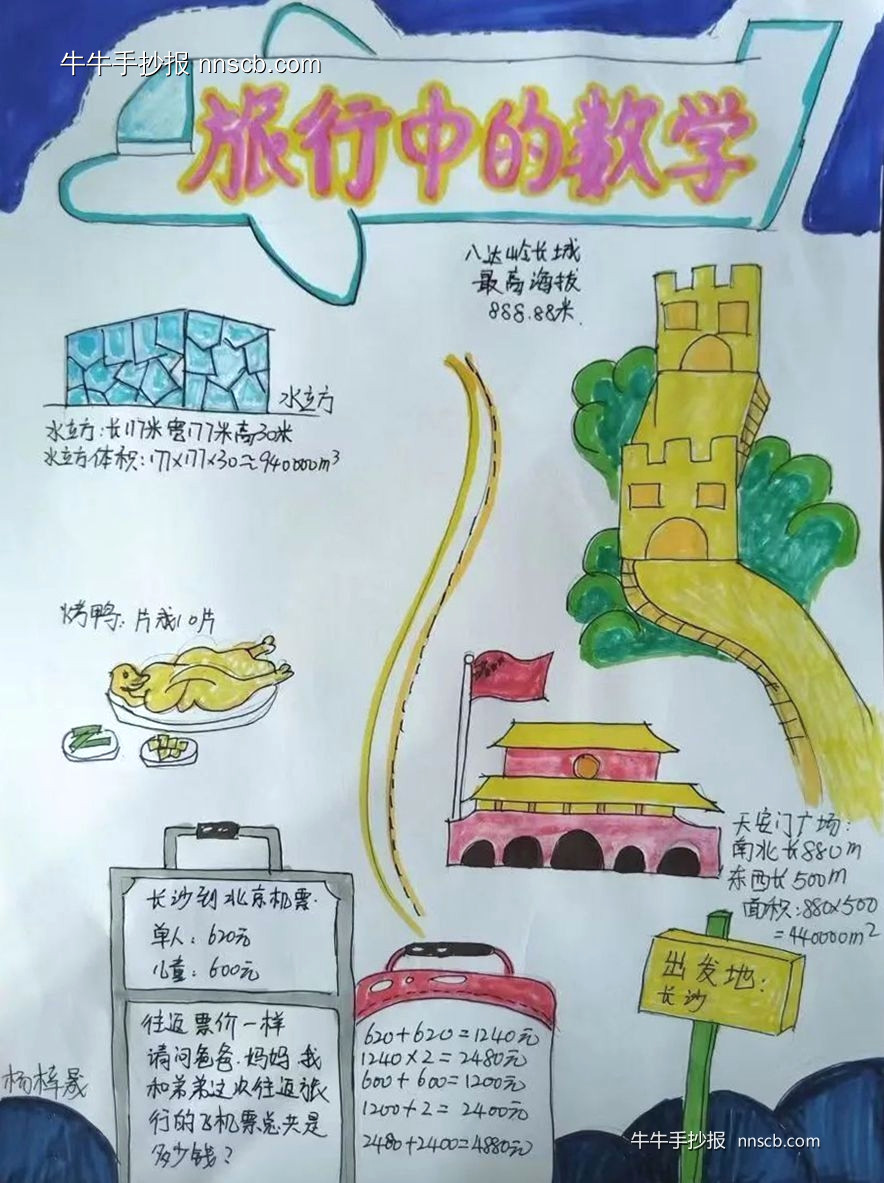 牛牛手抄报 nnscb.com
旅行中的数学
八达岭长城
最高海拔
888.88米
水立方
水立方:长177米宽177米高30米
水立方体积:177×177×30≈940000m³
烤鸭:片成10片
天安门广场:
南北长880m
东西长500m
面积:880×500
=440000m²
出发地:
长沙
长沙到北京机票.
单人:620元
儿童:600元
往返票价一样
请问爸爸.妈妈.我
和弟弟这次往返旅
行的飞机票总共是
多少钱?
620+620=1240元
1240×2=2480元
600+600=1200元
1200+2=2400元
2480+2400=4880元
杨梓晟
牛牛手抄报 nnscb.com